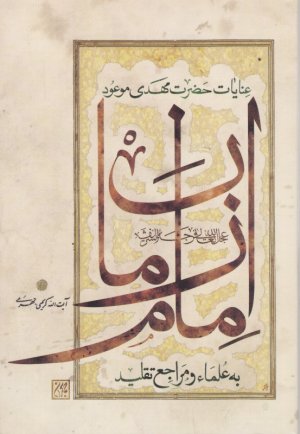 عنایات حضرت مهدی موعود
امام زمان
عجل الله تعالی فرجه الشریف
آیت الله کریمی جهرمی
به علماء و مراجع تقلید